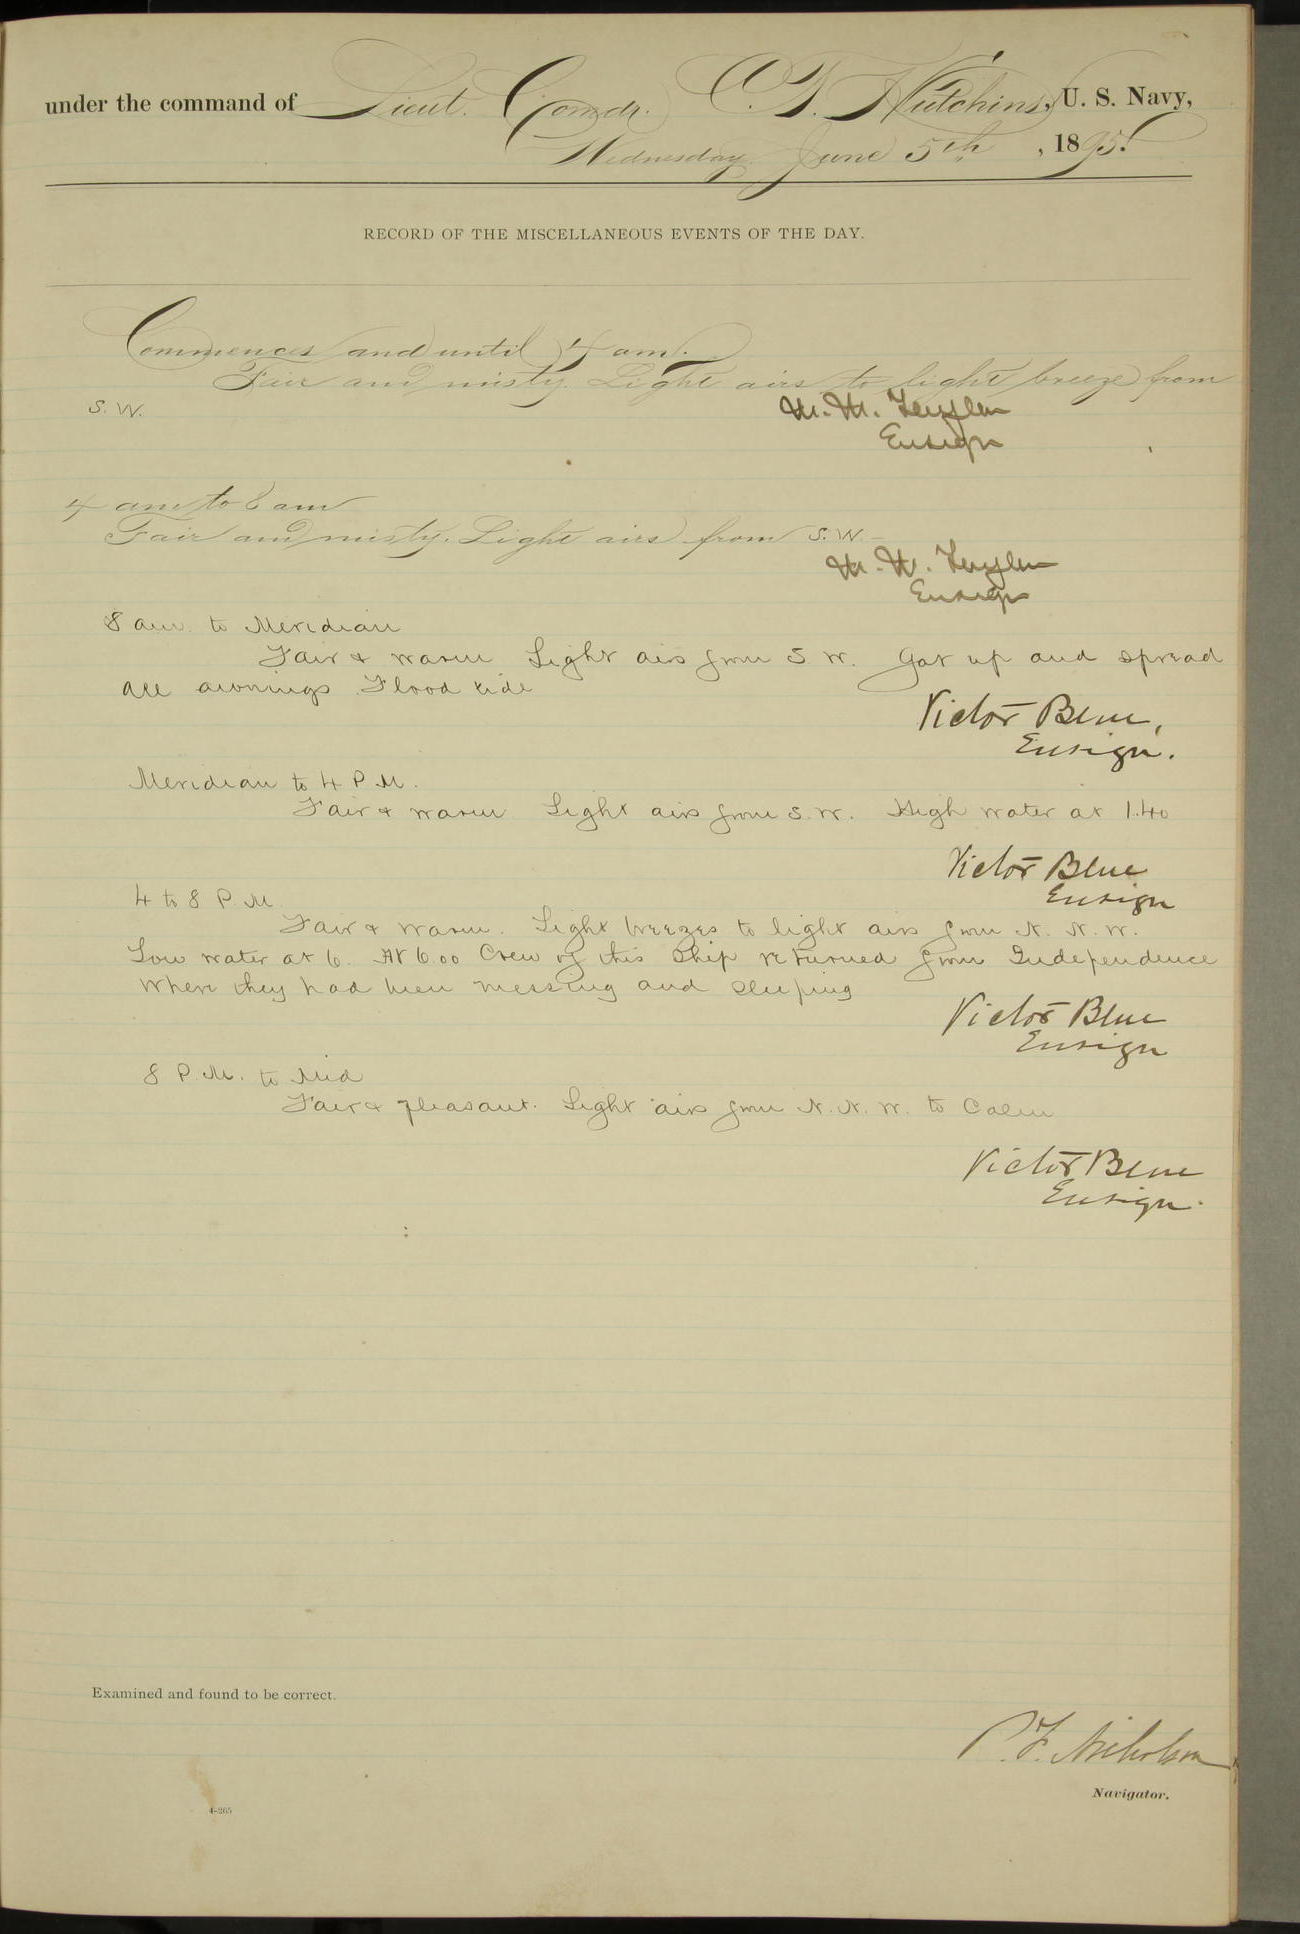 under the command of Lieut. Comdr. C. T. Hutchins, U. S. Navy,
Wednesday June 5th, 1895.
RECORD OF THE MISCELLANEOUS EVENTS OF THE DAY.
Commences and until 4 am.
Fair and misty. Light airs to light breeze from
S. W.
Ensign
4 am to 8 am
Fair and misty. Light airs from S. W.
Ensign
8 am. to Meridian
Fair & warm Light airs from S W. Got up and spread
all awnings. Flood tide
Victor Blue,
Ensign.
Meridian to 4 P. M.
Fair & warm Light airs from S. W. High water at 1.40
Victor Blue
Ensign
4 to 8 P. M.
Fair & warm. Light breezes to light airs from N. N. W.
Low water at 6. At 6.00 Crew of this Ship returned from Independence
where they had been messing and sleeping
Victor Blue
Ensign
8 P. M. to Mid
Fair & pleasant. Light airs from N. N. W. to Calm
Victor Blue
Ensign.
Examined and found to be correct.
P. F. Nicholson
Navigator.
4-265